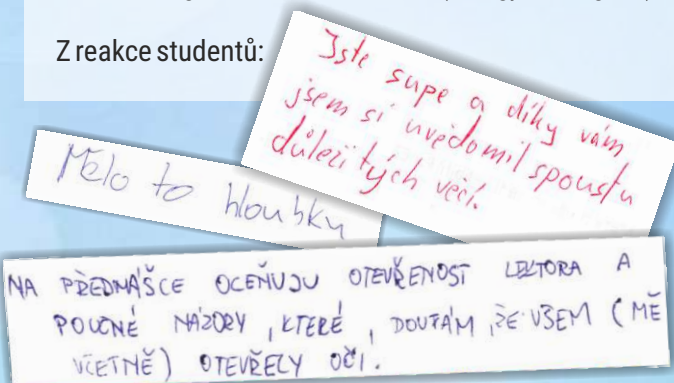 Z reakce studentů:
Jste supe a díky vám
jsem si uvědomil spoustu
důležitých věcí.
Mělo to hloubku
NA PŘEDNÁŠCE OCEŇUJU OTEVŘENOST LEKTORA A
POUČNÉ NÁZORY, KTERÉ, DOUFÁM, ŽE VŠEM (MĚ
VČETNĚ) OTEVŘELY OČI.